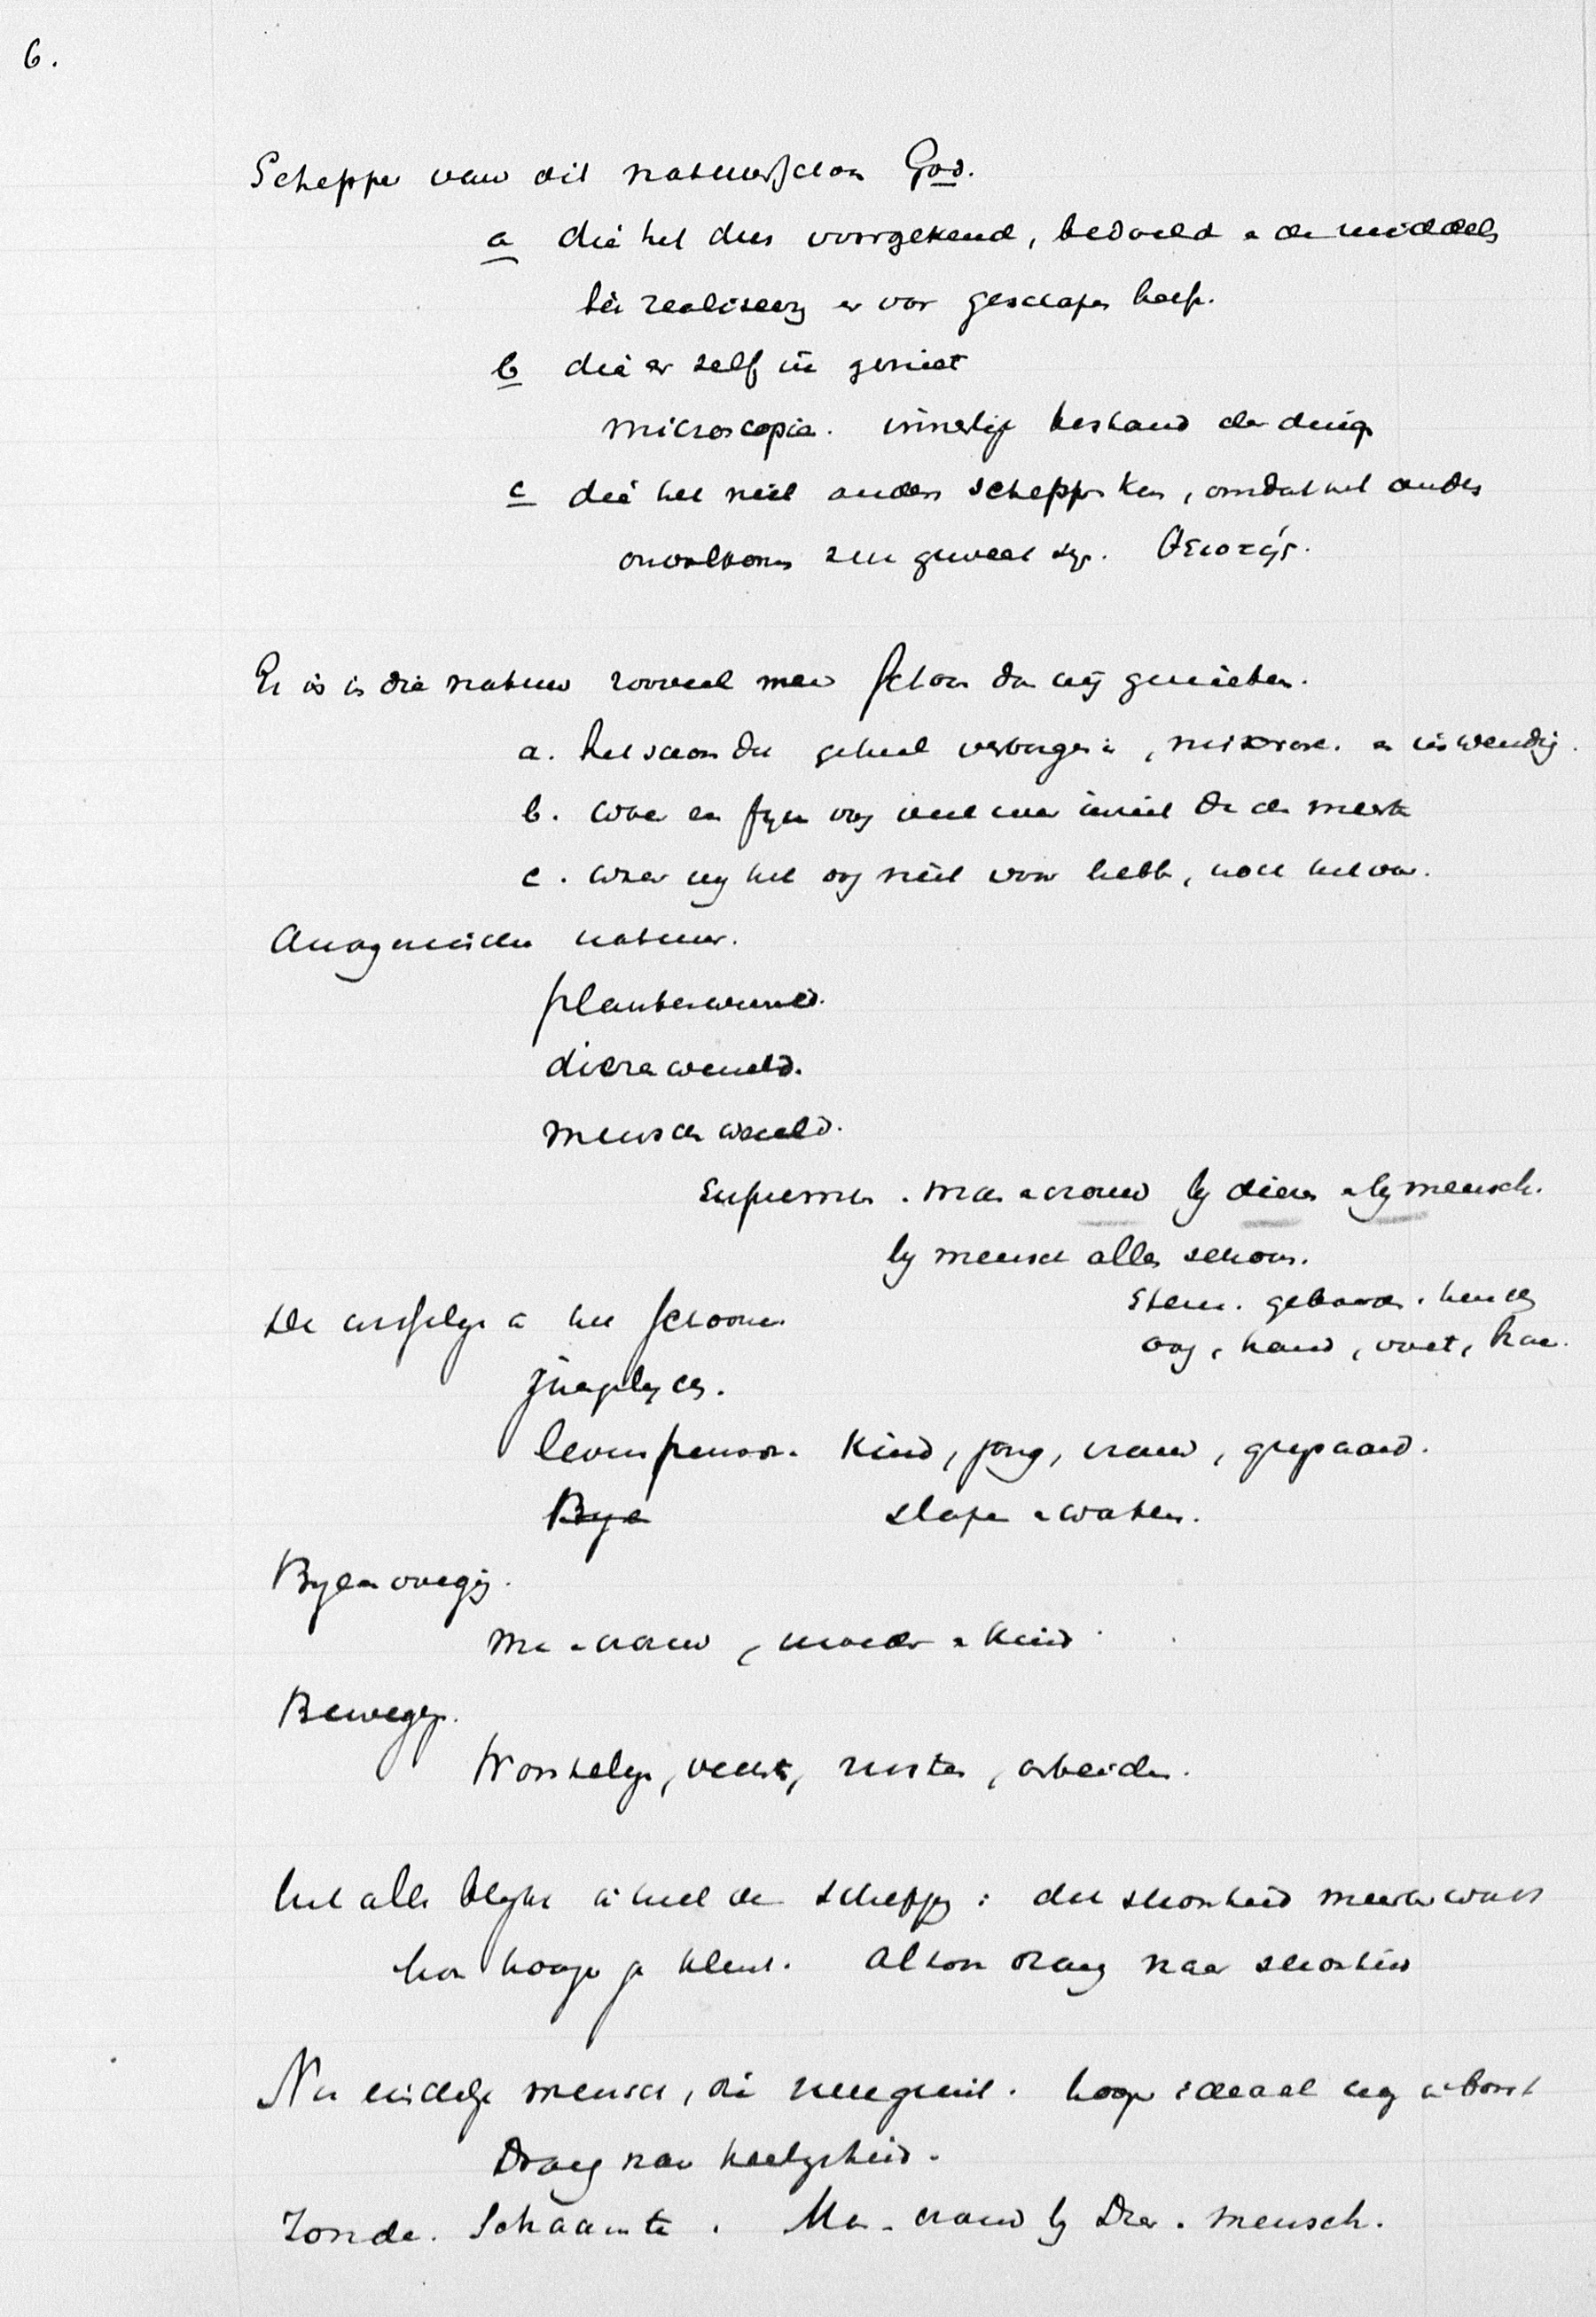 6.
Schepper van dit natuurschoon God.
a die het dus voorgekend, bedoeld en de middels
ter realiseering er voor geschapen heeft.
b die er zelf in geniet
microscopia. innerlijk bestand der dingen
c die het niet anders scheppen kon, omdat het anders
onvolkomen zou geweest zijn. Θειοτής.
Er is in die natuur zooveel meer schoon dan wij genieten.
a. het schoon dat geheel verborgen is, mikrosc. en inwendig.
b. waar een fijn oog veel meer in ziet dan de merk
c. waar wij het oog niet voor hebben, noch het oor.
natuur.
plantenwereld.
dierenwereld.
menschenwereld.
Supreme. man en vrouw by dieren en by mensch.
by mensch alles schoon.
Stem. gebaren. houding
oog, hand, voet, haar.
De in het schoone
levensperioden. Kind, jong, vrouw, grijsaard.
Bye slapen en waken.
Byeenvoeging.
Man en vrouw, moeder en kind.
Beweging.
Worstelen, vechten, rusten, arbeiden.
Uit alles blykt in heel de schepping: dat schoonheid
hooger. Alom drang naar schoonheid
Nu eindelyk mensch, die geniet. hooger ideaal nog in borst
Drang naar heerlykheid.
Zonde. Schaamte. Man - vrouw by Dier. mensch.